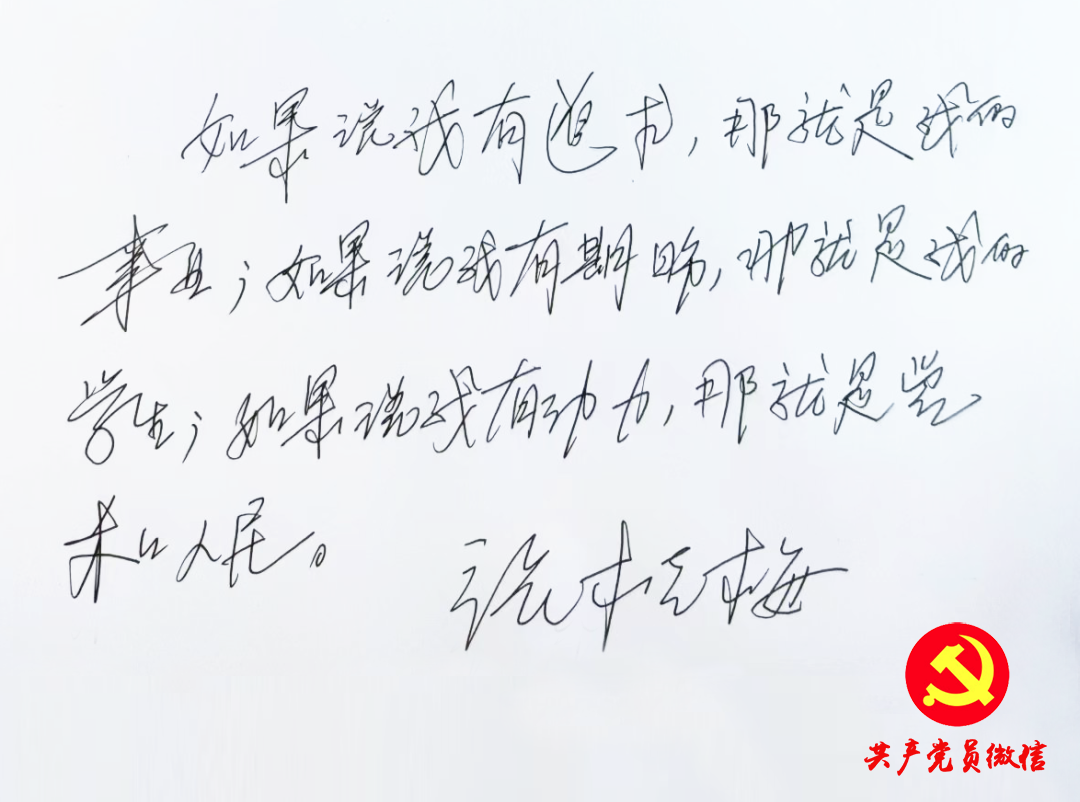 如果说我有追求，那就是我的
事业；如果说我有期盼，那就是我的
学生；如果说我有动力，那就是党
和人民。
张桂梅
共产党员微信